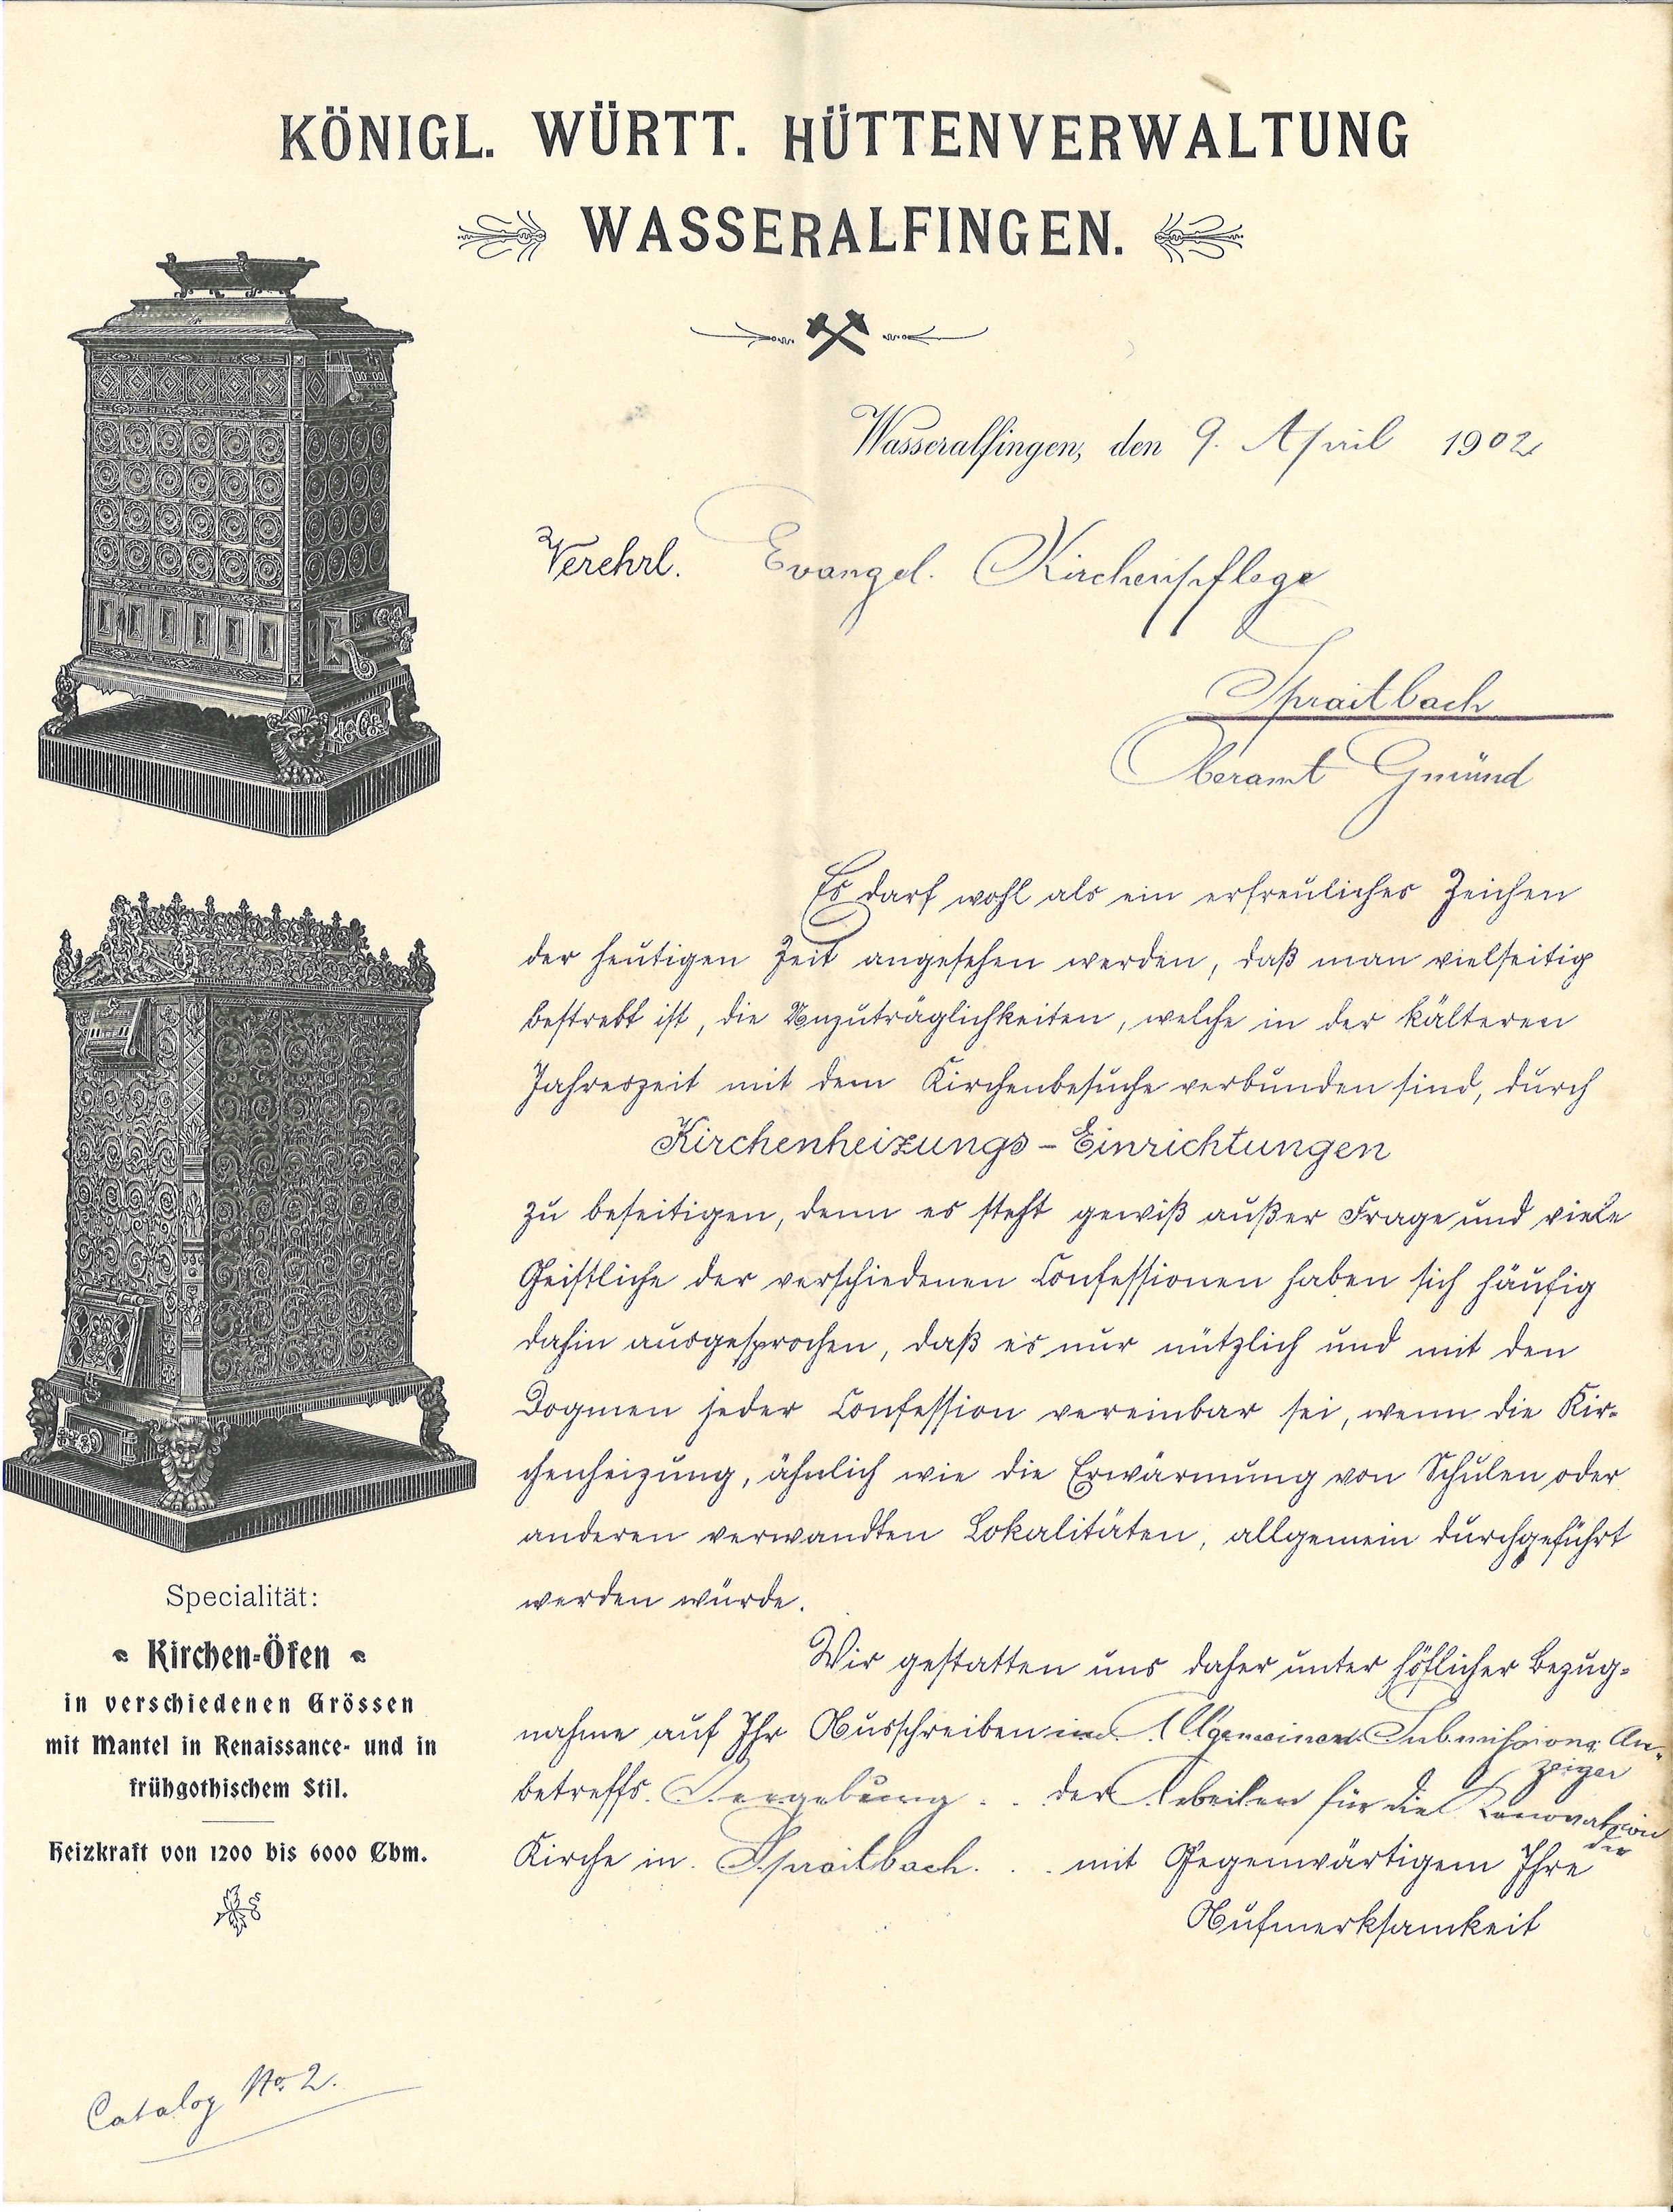 KÖNIGL. WÜRTT. HÜTTENVERWALTUNG
WASSERALFINGEN.
Wasseralfingen, den 9. April 1902
Verehrl. Evangel. Kirchenpflege
Spraitbach
Oberamt Gmünd
Es darf wohl als ein erfreuliches Zeichen
der heutigen Zeit angesehen werden, daß man vielseitig
bestrebt ist, die Unzuträglichkeiten, welche in der kälteren
Jahreszeit mit dem Kirchenbesuche verbunden sind, durch
Kirchenheizungs-Einrichtungen
zu beseitigen, denn es steht gewiß außer Frage und viele
Geistliche der verschiedenen Confessionen haben sich häufig
dahin ausgesprochen, daß es nur nützlich und mit den
Dogmen jeder Confession vereinbar sei, wenn die Kir-
chenheizung, ähnlich wie die Erwärmung von Schulen oder
anderen verwandten Lokalitäten, allgemein durchgeführt
werden würde.
Wir gestatten uns daher unter höflicher Bezug-
nahme auf Ihr Ausschreiben im Allgemeinen Submissions An-
zeiger
betreffs Vergebung der Arbeiten für die Renovation
der
Kirche in Spraitbach mit Gegenwärtigem Ihre
Aufmerksamkeit
Specialität:
Kirchen-Öfen
in verschiedenen Grössen
mit Mantel in Renaissance- und in
frühgothischem Stil.
Heizkraft von 1200 bis 6000 Cbm.
Catalog No. 2.